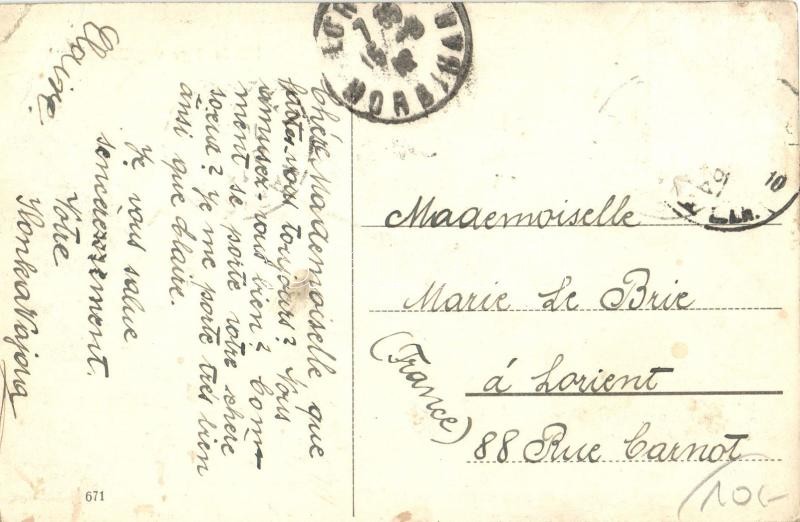 Chère Mademoiselle que
faites-vous toujours? Vous
amusez-vous bien? Com-
ment se porte votre chere
soeur? Je me porte très bien
ansi que Claire.
Je vous salue
sencerement.
Votre
Ilonka Vajova
Claire.
Mademoiselle
Marie Le Brie
á Lorient
(France)
88 Rue Carnot
MORBIHAN
10
671
10-